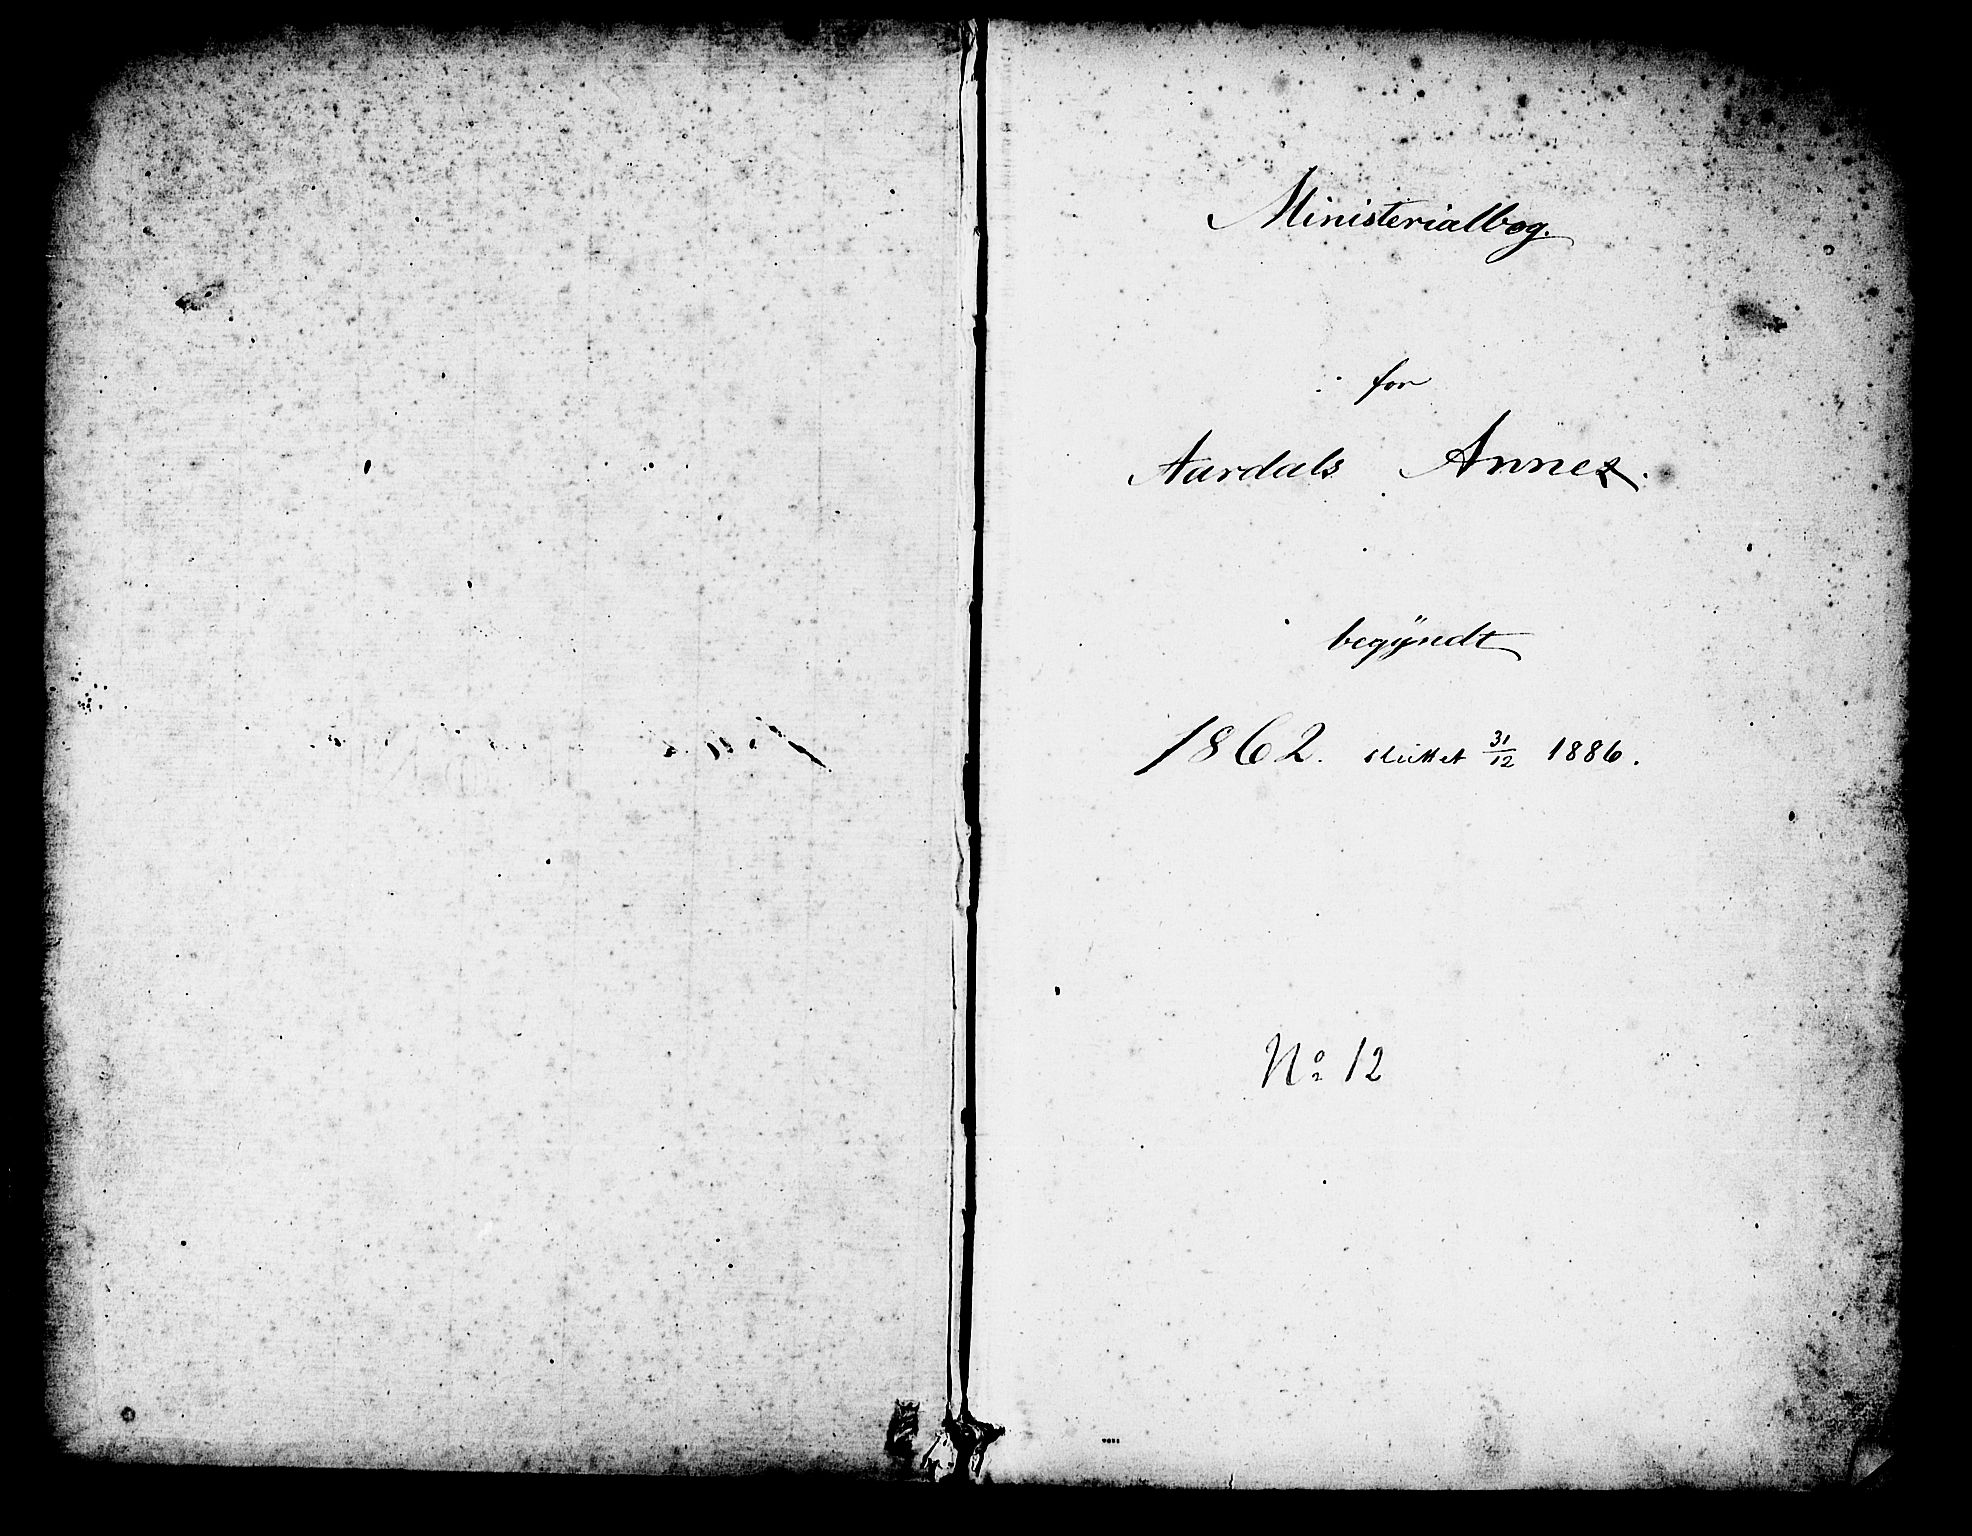 Ministerialbog.
for
Aardals Annex.
begÿndt
1862. sluttet 31/12 1886.
No 12